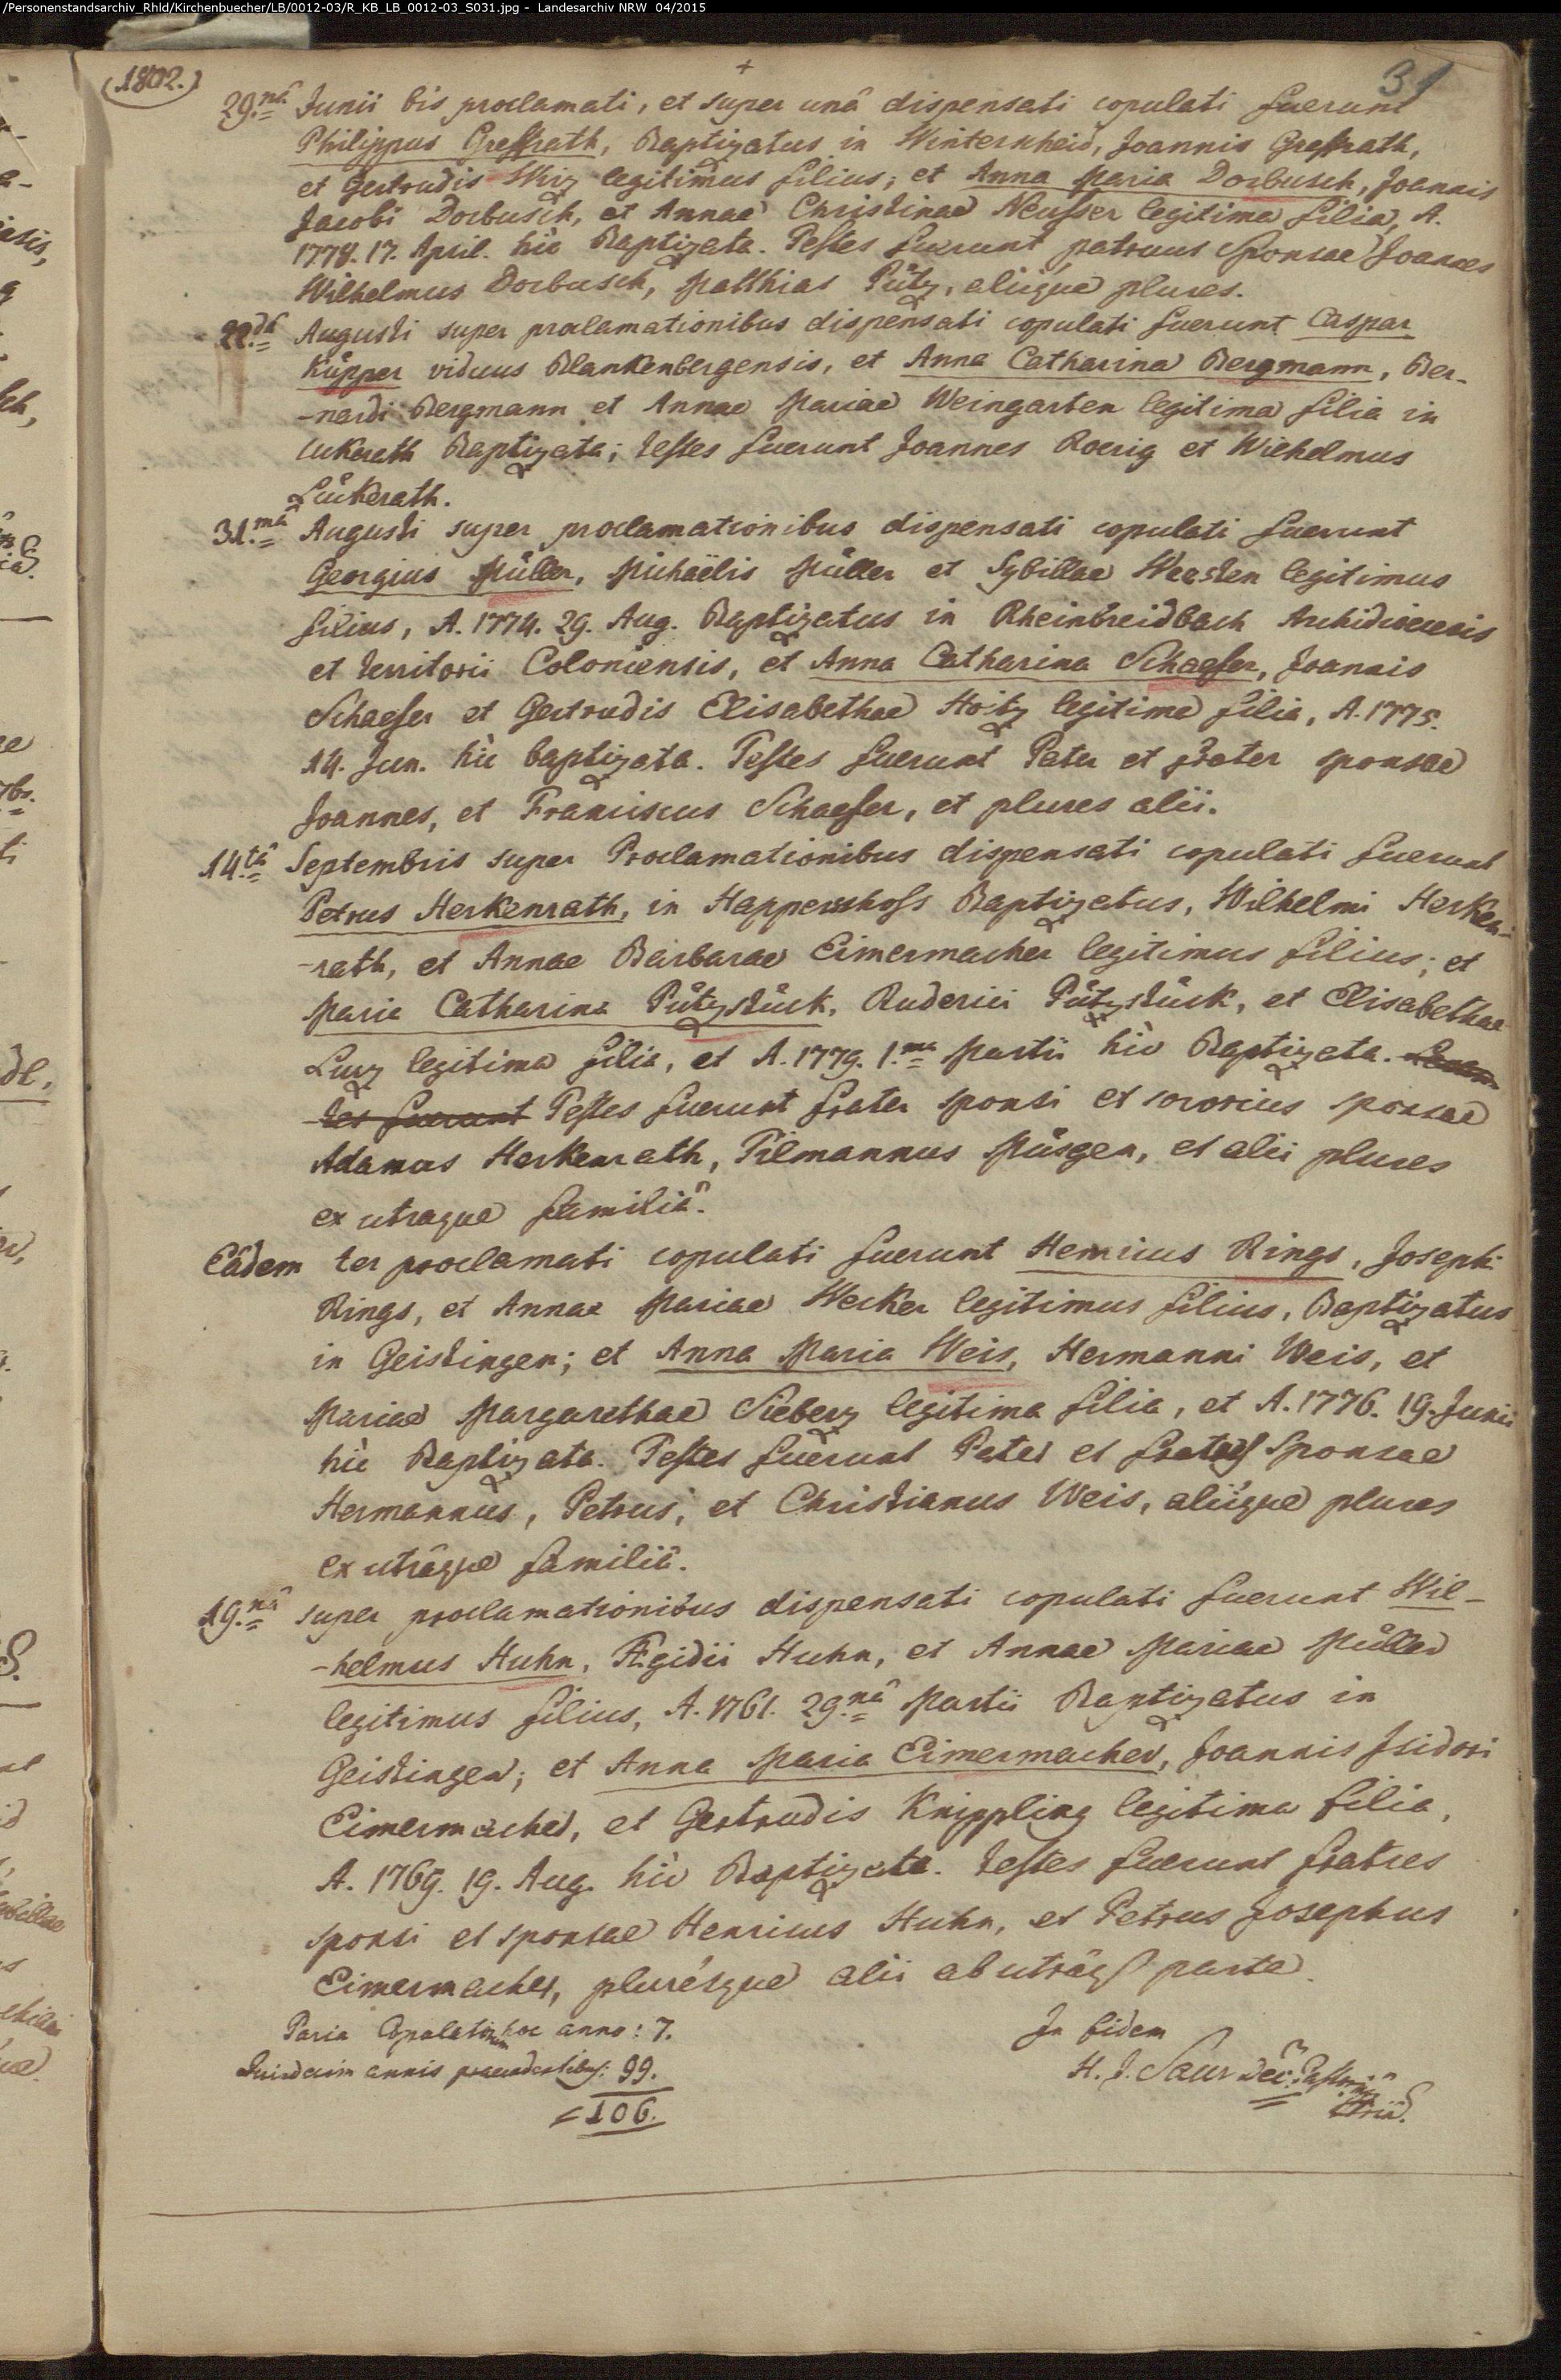 /Personenstandsarchiv_Rhld/Kirchenbuecher/LB/0012-03/R_KB_LB_0012-03_S031.jpg - Landesarchiv NRW 04/2015
(1802.)
31
29.nâ Junii bis proclamati, et super unâ dispensati copulati fuerunt
Philippus Gressrath, Baptizatus in Winterscheid, Joannis Gressrath,
et Gertrudis legitimus filius; et Anna Maria Dorbusch, Joannis
Jacobi Dorbusch, et Annae Christinae Neusser legitima filia, A.
1778. 17. April. hîc Baptizata. Testes fuerunt patruus Sponsae Joannes
Wilhelmus Dorbusch, Matthias Pütz, aliique plures.
22.dâ Augusti super proclamationibus dispensati copulati fuerunt Caspar
Küpper viduus Blankenbergensis, et Anna Catharina Bergmann, Ber-
-nardi Bergmann et Annae Mariae Weingarten legitima filia in
Uckerath Baptizata; testes fuerunt Joannes Roerig et Wilhelmus
Lückerath.
31.mâ Augusti super proclamationibus dispensati copulati fuerunt
Georgius Müller, Michaëlis Müller et Sybillae Weesten legitimus
filius, A. 1774. 29. Aug. Baptizatus in Rheinbreidbach Archidioecesis
et territorii Coloniensis, et Anna Catharina Schaefer, Joannis
Schaefer et Gertrudis Elisabethae Hoitz legitima filia, A. 1775.
14. Jun. hîc baptizata. Testes fuerunt Pater et frater sponsae
Joannes, et Franciscus Schaefer, et plures alii.
14.tâ Septembris super Proclamationibus dispensati copulati fuerunt
Petrus Herkenrath, in Happerschoss Baptizatus, Wilhelmi Herken-
-rath, et Annae Barbarae Eimermacher legitimus filius; et
Maria Catharina Pützstück, Ruderici Pützstück, et Elisabethae
Lutz legitima filia, et A. 1779. 1.ma Martii hîc Baptizata.
-tes fuerunt Testes fuerunt frater sponsi et sororius sponsae
Adamus Herkenrath, Tilmannus Müsgen, et alii plures
ex utraque familiâ.
Eâdem ter proclamati copulati fuerunt Henricus Rings, Josephi
Rings, et Annae Mariae Werker legitimus filius, Baptizatus
in Geistingen; et Anna Maria Weis, Hermanni Weis, et
Mariae Margarethae Sieberz legitima filia, et A. 1776. 19. Junii
hîc Baptizata. Testes fuerunt Pater et fratres Sponsae
Hermannus, Petrus, et Christianus Weis, aliique plures
ex utrâque familiâ.
19.nâ super proclamationibus dispensati copulati fuerunt Wil-
-helmus Huhn, Ægidii Huhn, et Annae Mariae Müller
legitimus filius, A. 1761. 29.nâ Martii Baptizatus in
Geistingen; et Anna Maria Eimermacher, Joannis Isidori
Eimermacher, et Gertrudis Knippling legitima filia,
A. 1769. 19. Aug. hîc Baptizata. testes fuerunt fratres
sponsi et sponsae Henricus Huhn, et Petrus Josephus
Eimermacher, plurésque alii ab utrâq parte.
Paria Copulatorum hoc anno: 7.
annis praecedentibus: 99.
= 106.
In fidem
H. J. Saur Dec. Pastor